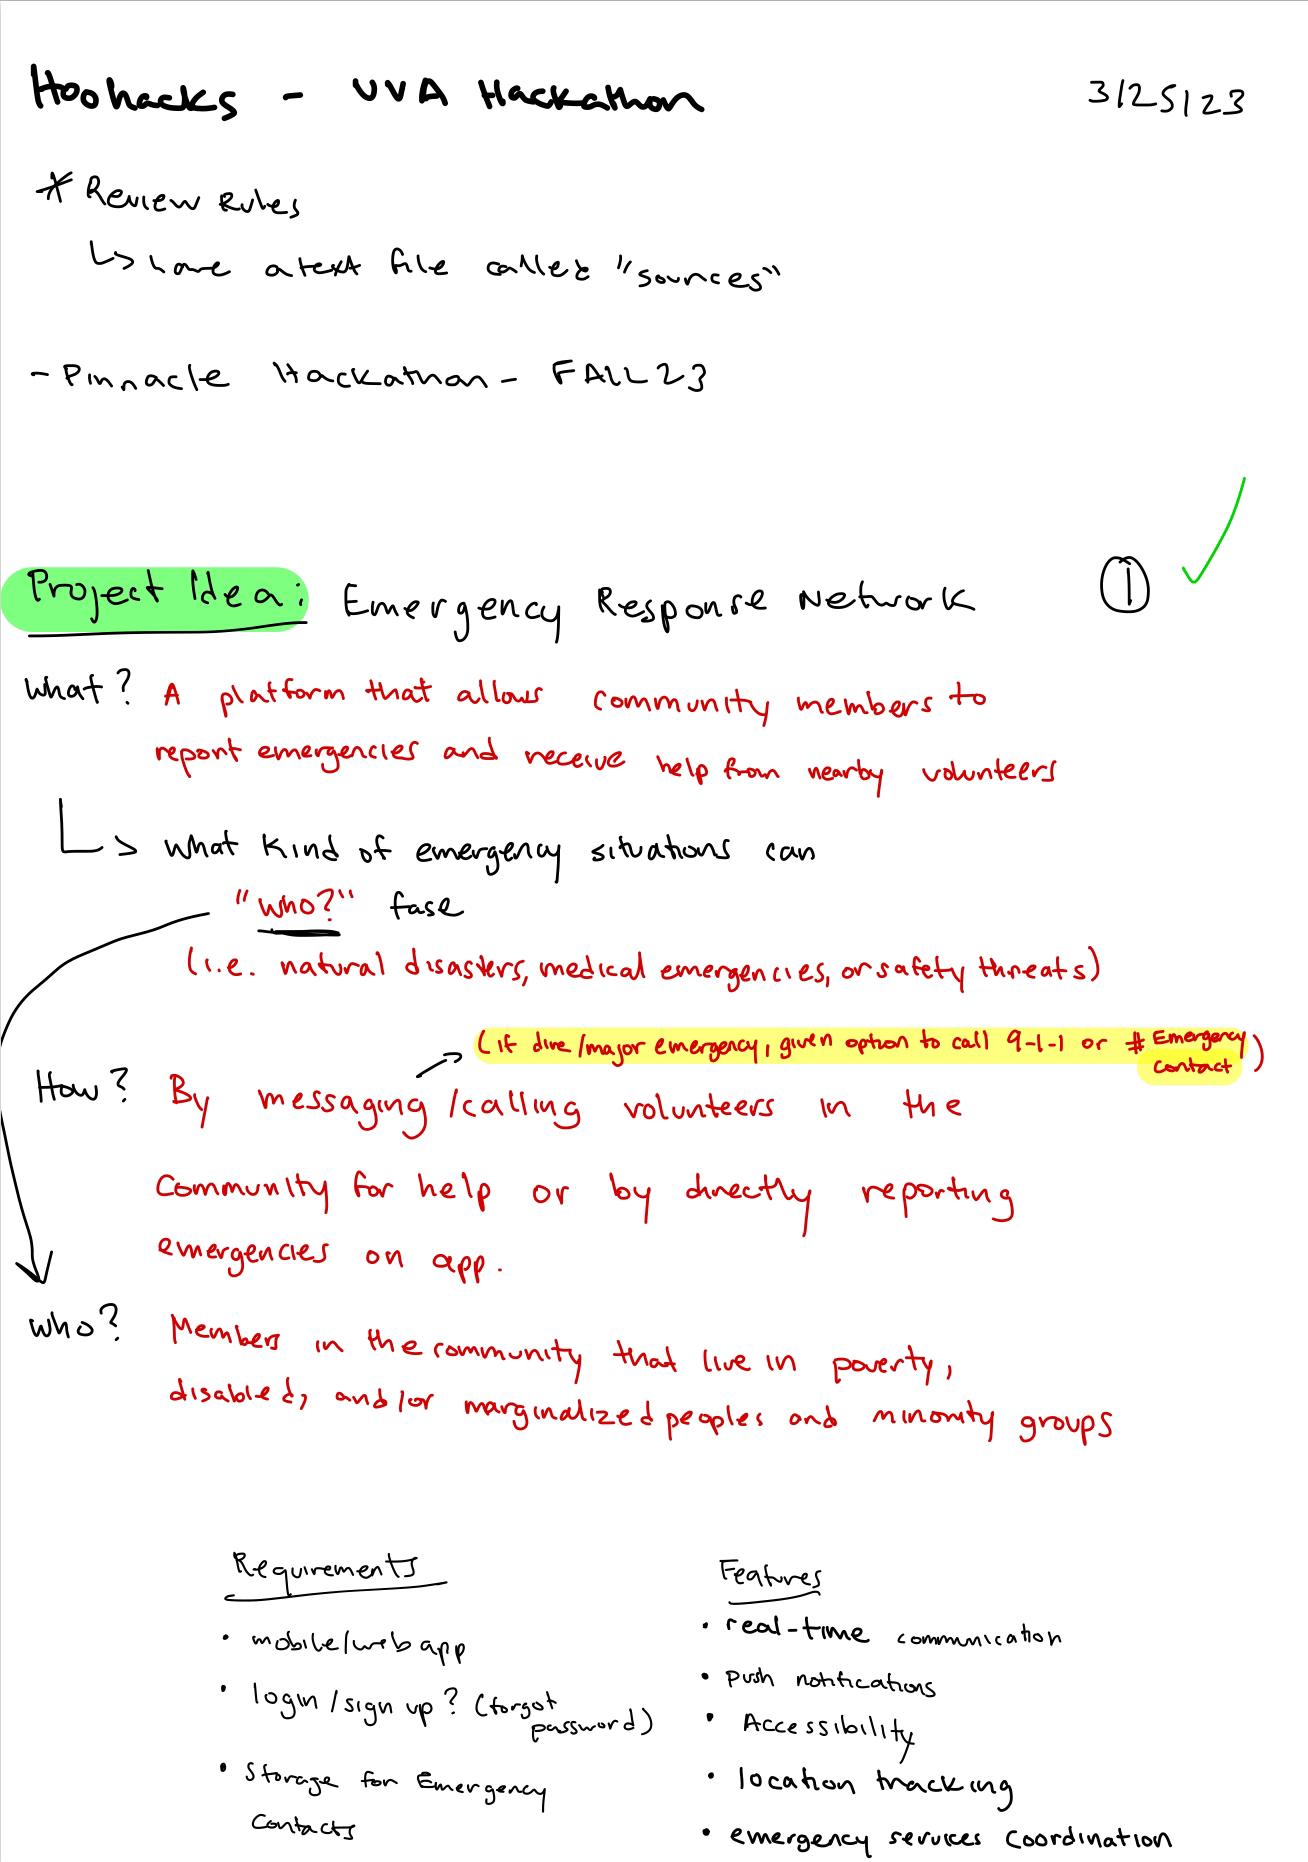 Hoohacks - UVA Hackathon 3/25/23
* Review Rules
↳ have a text file called "sources"
- Pinnacle Hackathon - FALL 23
Project Idea: Emergency Response Network ① ✓
What? A platform that allows community members to
report emergencies and receive help from nearby volunteers
↳ what kind of emergency situations can
"who?" fase
(i.e. natural disasters, medical emergencies, or safety threats)
(if dire/major emergency, given option to call 9-1-1 or # Emergency
Contact)
How? By messaging/calling volunteers in the
Community for help or by directly reporting
emergencies on app.
Who? Members in the community that live in poverty,
disabled, and/or marginalized peoples and minority groups
Requirements
• mobile/web app
• login/sign up? (forgot
password)
• Storage for Emergency
Contacts
Features
• real-time communication
• push notifications
• Accessibility
• location tracking
• emergency services coordination